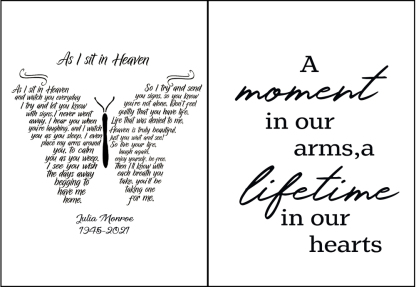 As I sit in Heaven
As I sit in Heaven
and watch you everyday
I try and let you know
with signs, I never went
away. I hear you when
you're laughing, and I watch
you as you sleep. I even
place my arms around
you, to calm
you as you weep.
I see you wish
the days away
begging to
have me
home.
So I try and send
you signs, so you know
you're not alone. Don't feel
guilty that you have life,
Life that was denied to me.
Heaven is truly beautiful,
just you wait and see!
So live your life,
laugh again,
enjoy yourself, be free.
Then I'll know with
each breath you
take, you'll be
taking one
for me.
Julia Monroe
1945-2021
A
moment
in our
arms,a
lifetime
in our
hearts